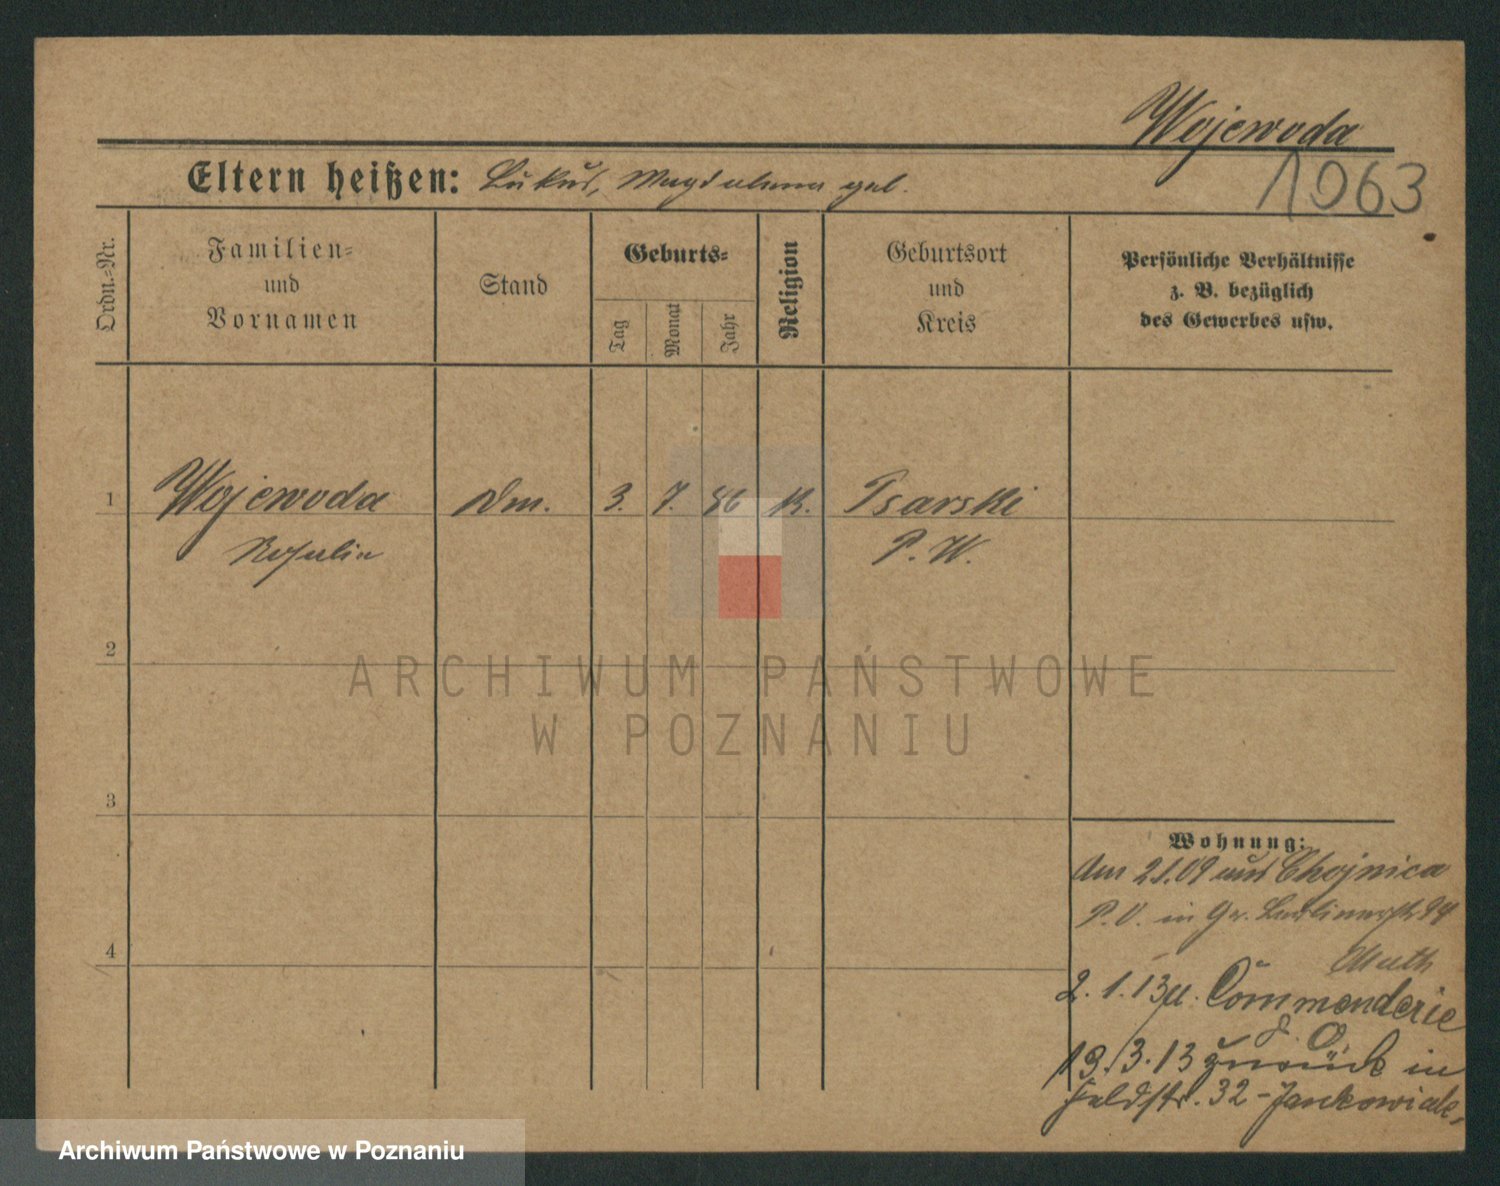 Wojewoda
1063
Eltern heißen: Lukas, Magdalena geb.
Ordn.=Nr.
Familien=
und
Vornamen
Stand
Geburts=
Tag
Monat
Jahr
Religion
Geburtsort
und
Kreis
Persönliche Verhältnisse
z. B. bezüglich
des Gewerbes usw.
1
Wojewoda
Rosalia
3. 7. 86 K.
P. W.
2
ARCHIWUM PAŃSTWOWE
W POZNANIU
3
Wohnung:
Am 2.1.09 aus Chojnica
P. O. in Gr. Berlinerstr 94
Muth
2. 1. 13 u. Commenderie
P. O.
19. 3. 13 zurück in
Feldstr. 32 -
4
Archiwum Państwowe w Poznaniu